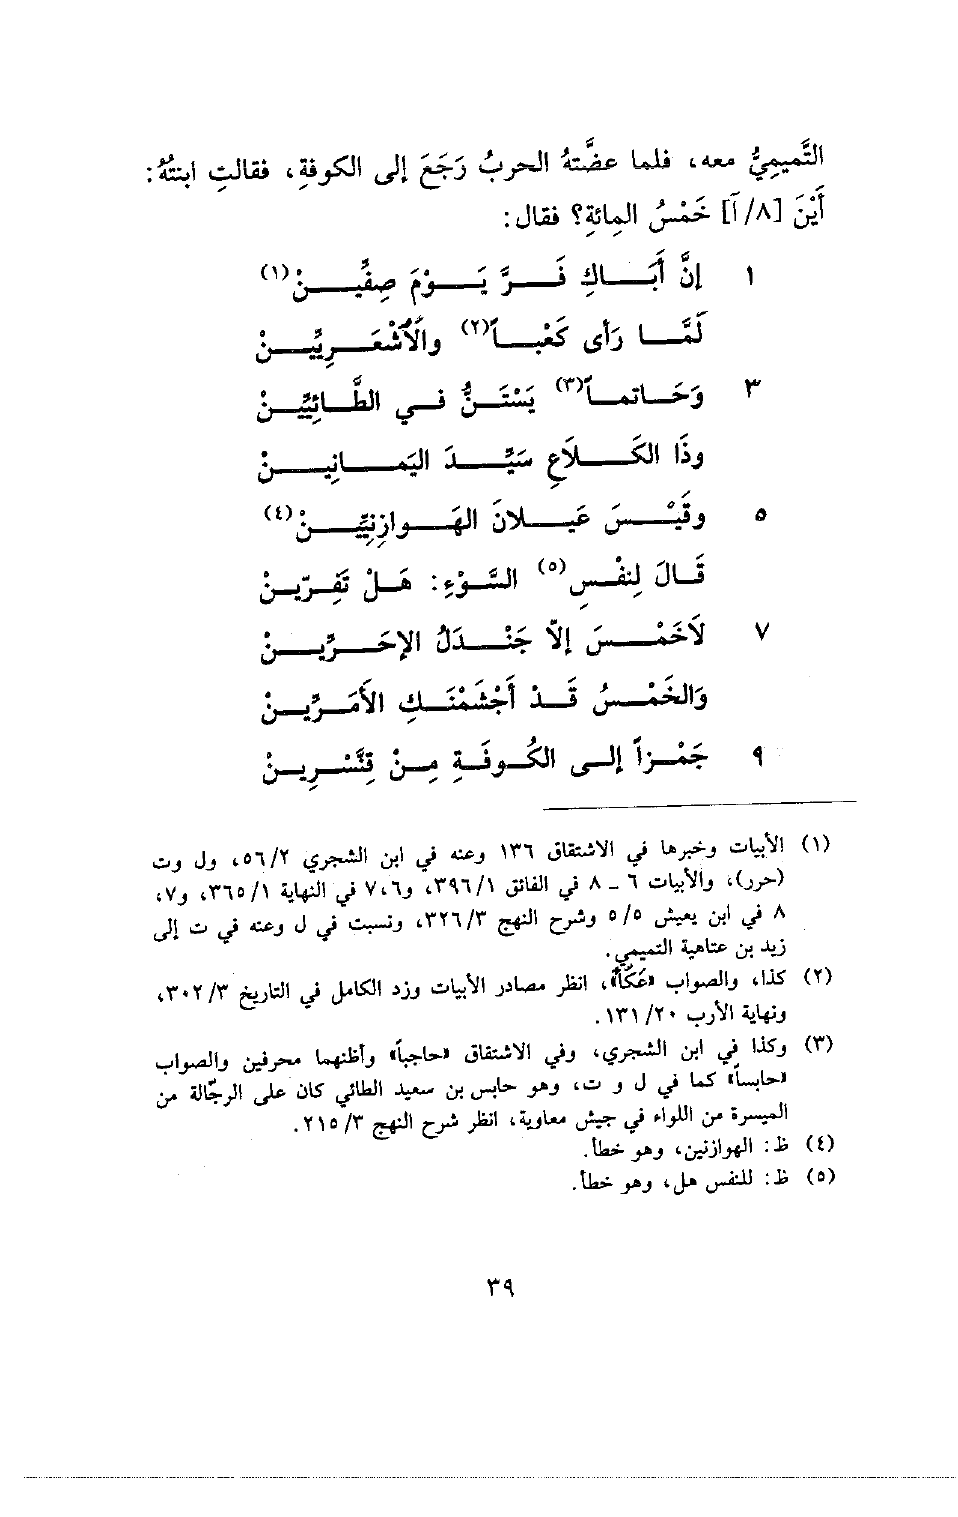 التَّميمِيُّ معه، فلما عضَّتهُ الحربُ رَجَعَ إلى الكوفةِ، فقالتِ ابنتُهُ:
أَيْنَ [٨/ آ] خَمْسُ المِائةِ؟ فقال:
١ إنَّ أَبَـاكِ فَـرَّ يَـوْمَ صِفِّيـنْ(١)
لَمَّـا رَأى كَعْبـاً(٢) والأَشْعَـرِيِّيـنْ
٣ وَحَـاتماً(٣) يَسْتَـنُّ فـي الطَّـائِيِّيـنْ
وذَا الكَـلاَعِ سَيِّـدَ اليَمـانِيـنْ
٥ وقَيْـسَ عَيـلانَ الهَـوازِنِيِّيـنْ(٤)
قَـالَ لِنفْـسِ(٥) السَّـوْءِ: هَـلْ تَفِـرِّيـنْ
٧ لاَخَمْـسَ إلاّ جَنْـدَلُ الإحَـرِّيـنْ
وَالخَمْـسُ قَـدْ أَجْشَمْنَـكِ الأَمَـرِّيـنْ
٩ جَمْـزاً إلـى الكُـوفَـةِ مِـنْ قِنَّسْـرِيـنْ
(١) الأبيات وخبرها في الاشتقاق ١٣٦ وعنه في ابن الشجري ٥٦/٢، ول وت
(حرر)، والأبيات ٦ ـ ٨ في الفائق ٣٩٦/١، و٧،٦ في النهاية ٣٦٥/١، و٧،
٨ في ابن يعيش ٥/٥ وشرح النهج ٣٢٦/٣، ونسبت في ل وعنه في ت إلى
زيد بن عتاهية التميمي.
(٢) كذا، والصواب «عَكّاً»، انظر مصادر الأبيات وزد الكامل في التاريخ ٣٠٢/٣،
ونهاية الأرب ١٣١/٢٠.
(٣) وكذا في ابن الشجري، وفي الاشتقاق «حاجباً» وأظنهما محرفين والصواب
«حابساً» كما في ل و ت، وهو حابس بن سعيد الطائي كان على الرجّالة من
الميسرة من اللواء في جيش معاوية، انظر شرح النهج ٢١٥/٣.
(٤) ظ: الهوازنين، وهو خطأ.
(٥) ظ: للنفس هل، وهو خطأ.
٣٩